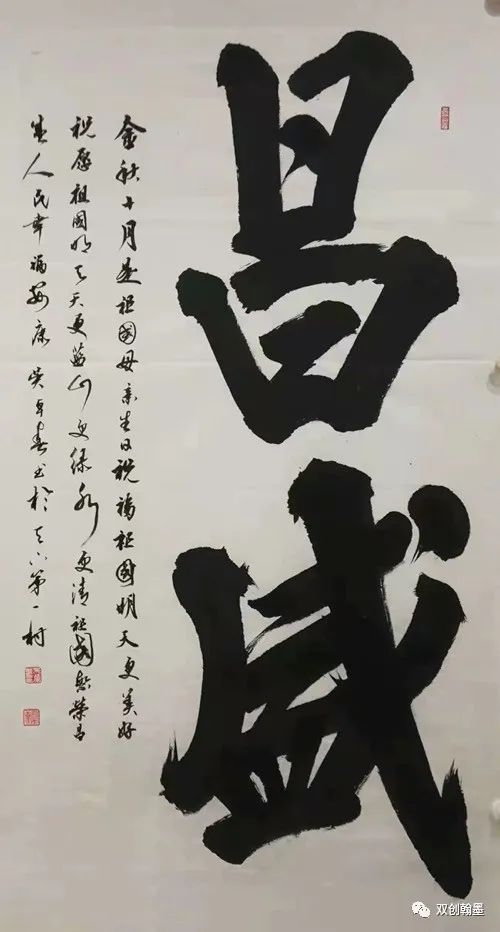 昌盛
金秋十月是祖國母亲生日祝福祖國明天更美好
祝愿祖國明天天更蓝山更绿水更清祖國繁荣昌
盛人民幸福安康 吴卓春书於天下第一村
双创翰墨